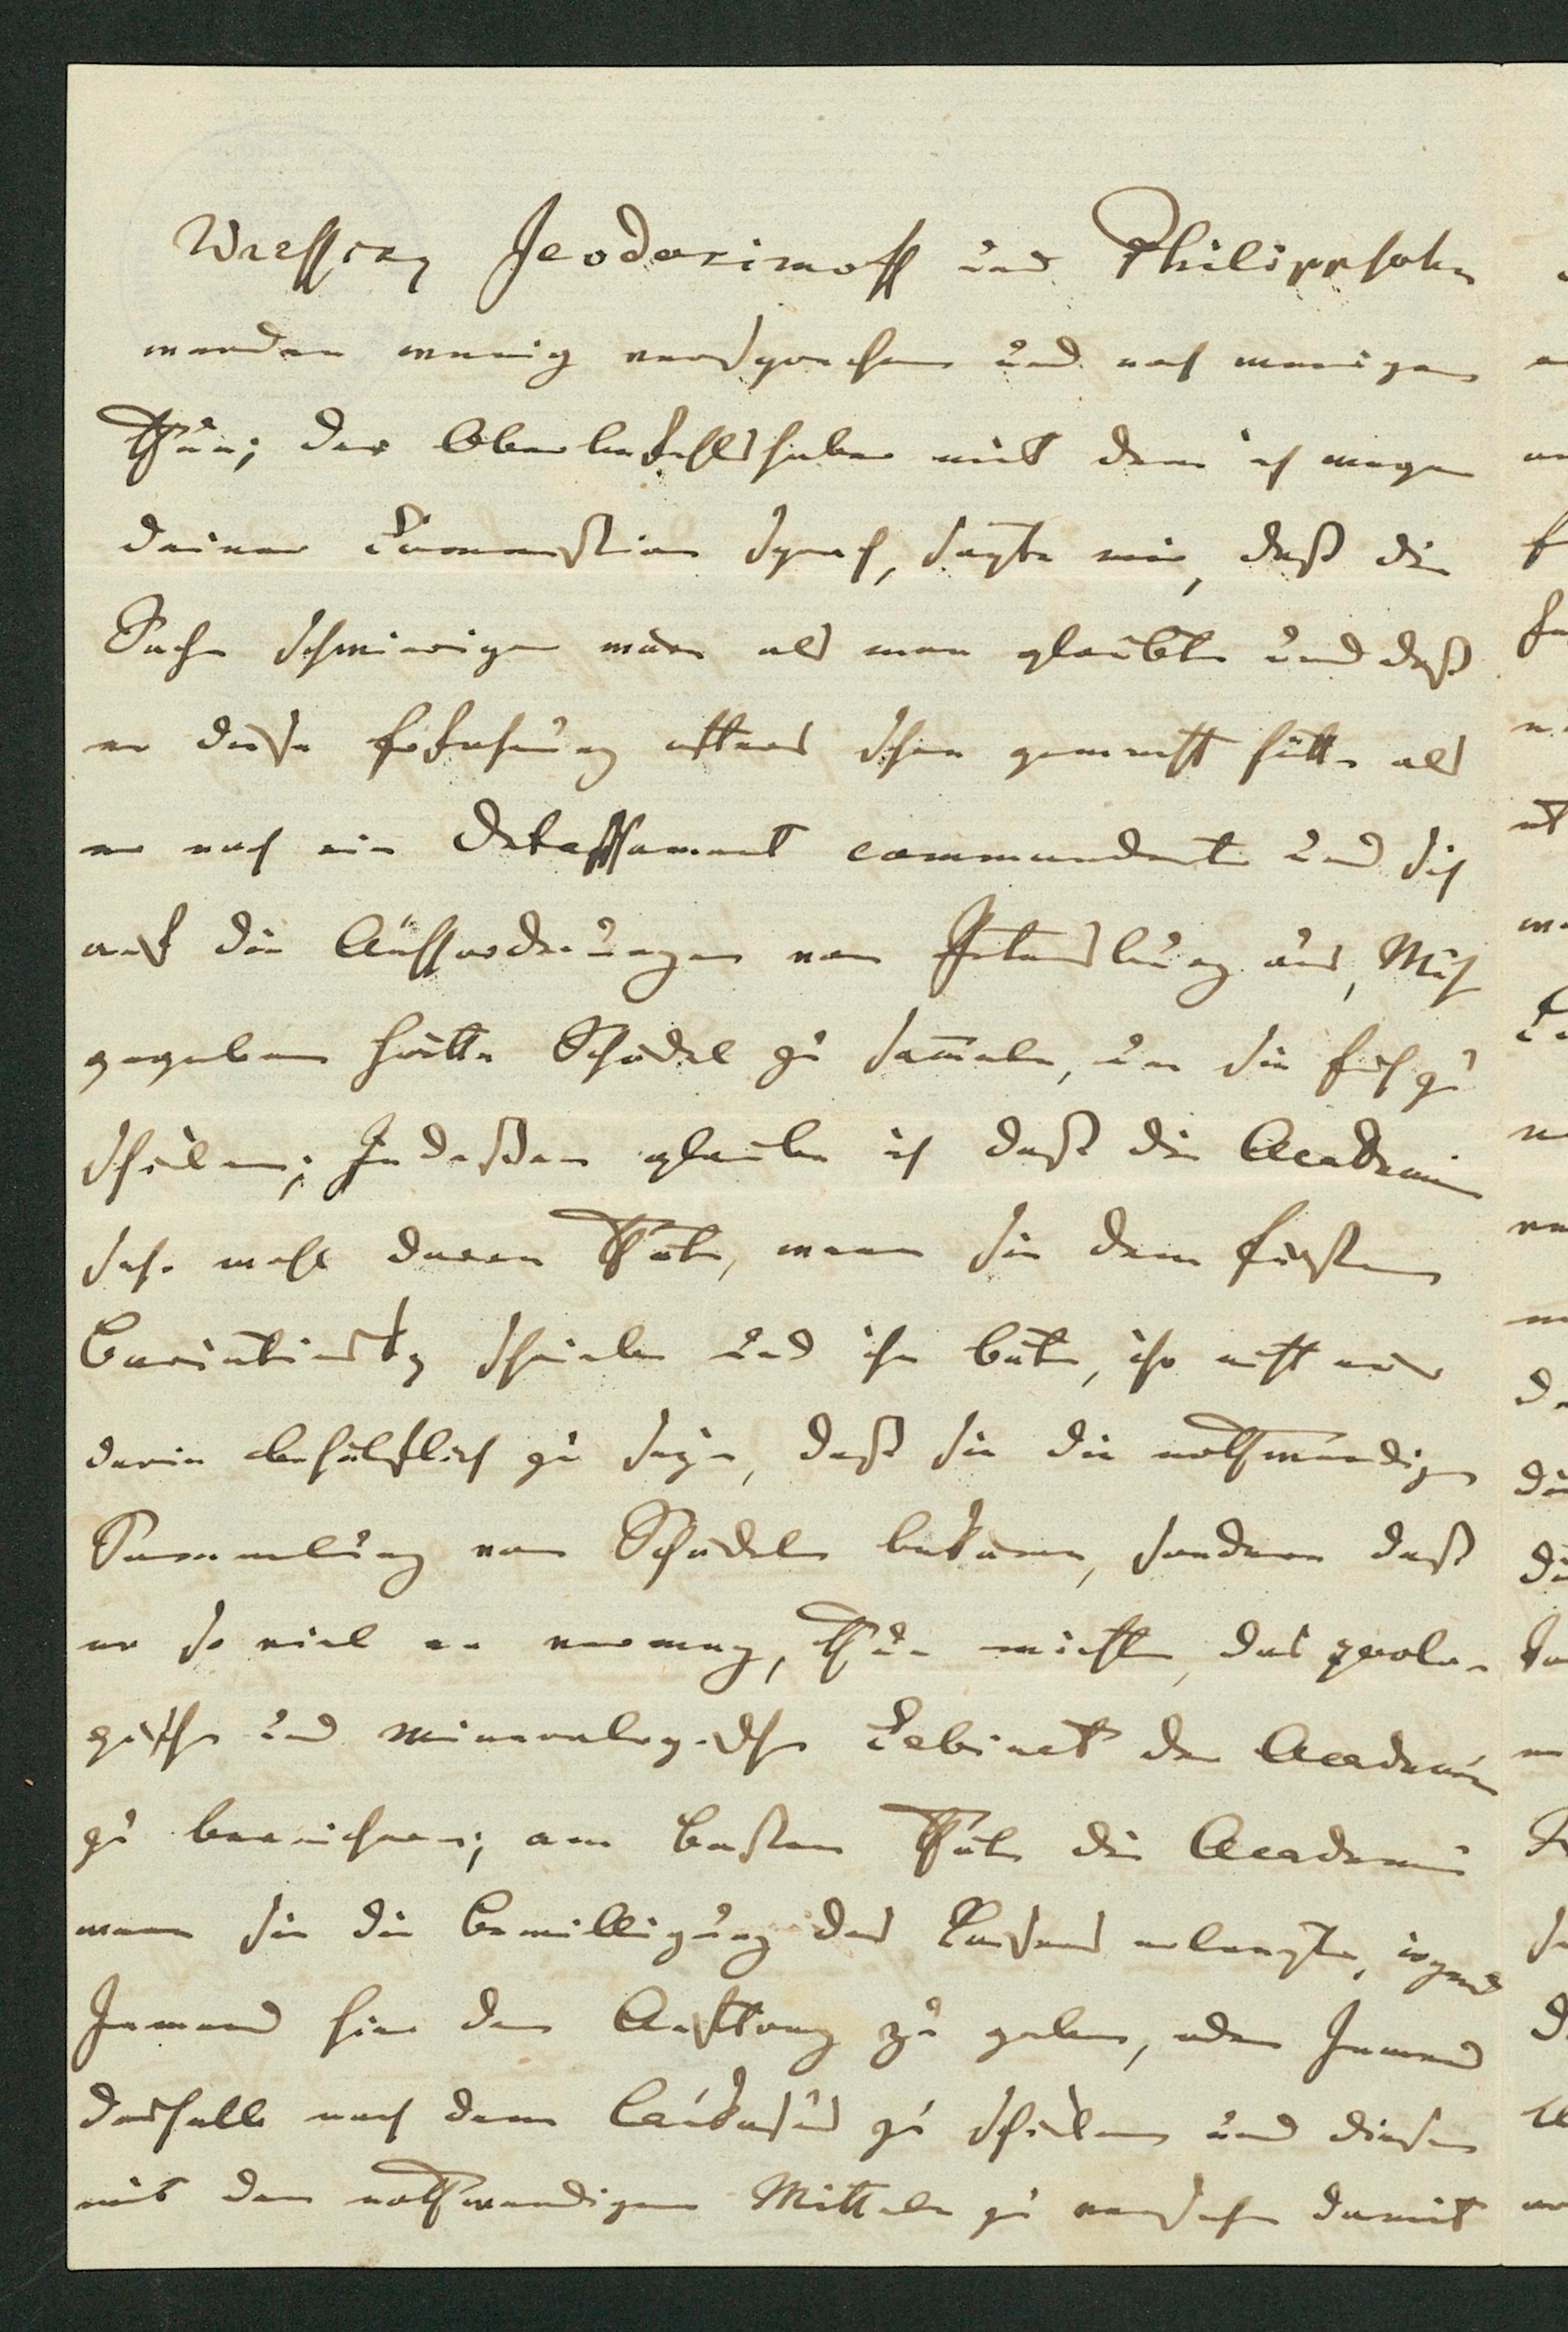 Wreffsky Jeodosimoff und Philippsohn
werden wenig versprechen und noch weniger
thun; der Oberbefehlshaber mit dem ich wegen
deiner Commission sprach, sagte mir, daß die
Sache schwieriger wäre als man glaubte und daß
er diese Erfahrung öfters schon gemacht hätte als
er noch ein Detaschement commandirte und sich
auf die Aufforderungen von Petersburg aus, Müh
gegeben hätte Schädel zu sammeln, um sie hinzu
schicken; Indeßen glaube ich daß die Academie
sehr wohl daran thäte, wenn sie dem Fürsten
Bariatinsky schriebe und ihn bäte, ihr nicht nur
darin behülflich zu seyn, daß sie die nothwendige
Sammlung von Schädeln bekäme, sondern daß
er so viel er vermag, thun möchte, das zoolo-
gische und mineralogische Cabinet der Academie
zu bereichern; am besten thäte die Academie
wenn sie die Bewilligung des Kaisers erlangte, irgend
Jemand hier den Auftrag zu geben, oder Jemand
deshalb nach dem Caukasus zu schicken und diesen
mit den nothwendigen Mitteln zu versehen damit